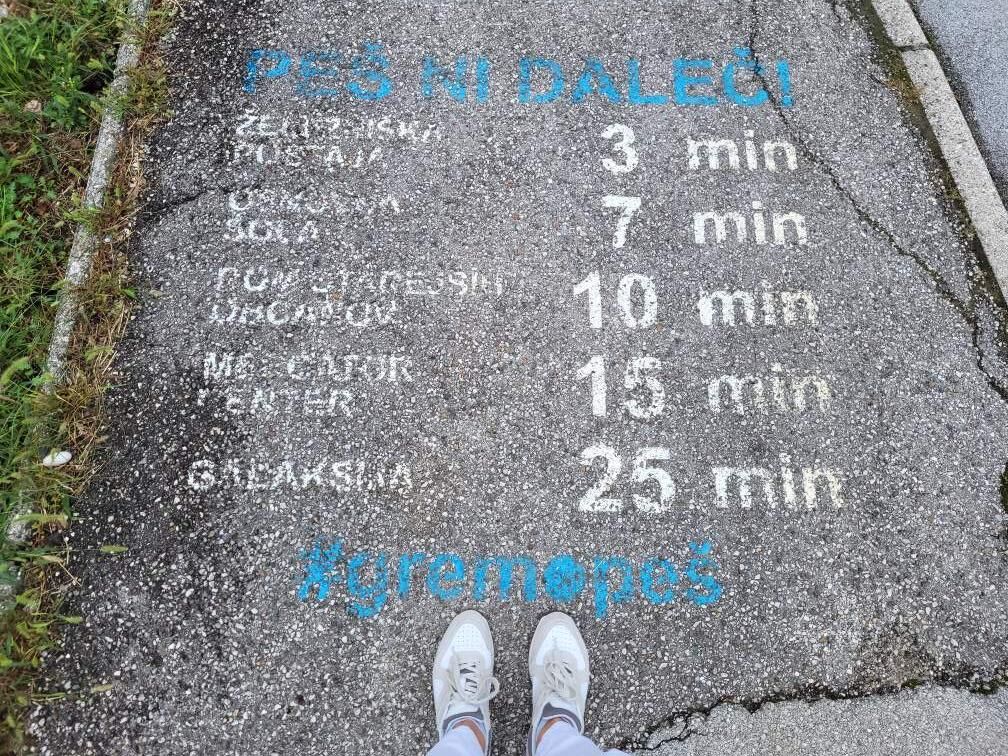 PEŠ NI DALEČ!
ŽELEZNIŠKA 3 min
POSTAJA
OSNOVNA 7 min
ŠOLA
DOM STAREJŠIH 10 min
OBČANOV
MERCATOR 15 min
CENTER
GALAKSIJA 25 min
#gremopeš